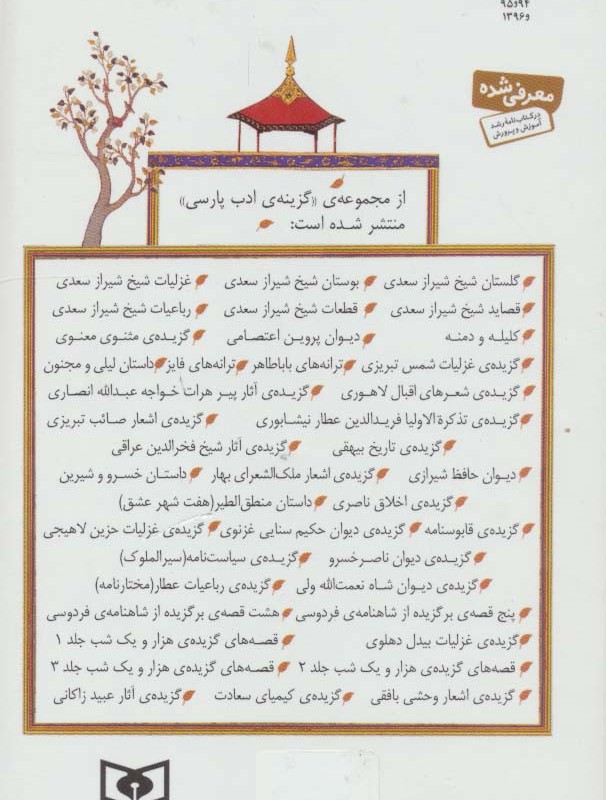 ۹۴و۹۵
و۱۳۹۶
معرفی شده
در کتاب‌نامهٔ رشد
آموزش و پرورش
از مجموعه‌ی «گزینه‌ی ادب پارسی»
منتشر شده است:
گلستان شیخ شیراز سعدی بوستان شیخ شیراز سعدی غزلیات شیخ شیراز سعدی
قصاید شیخ شیراز سعدی قطعات شیخ شیراز سعدی رباعیات شیخ شیراز سعدی
کلیله و دمنه دیوان پروین اعتصامی گزیده‌ی مثنوی معنوی
گزیده‌ی غزلیات شمس تبریزی ترانه‌های باباطاهر ترانه‌های فایز داستان لیلی و مجنون
گزیده‌ی شعرهای اقبال لاهوری گزیده‌ی آثار پیر هرات خواجه عبدالله انصاری
گزیده‌ی تذکرةالاولیا فریدالدین عطار نیشابوری گزیده‌ی اشعار صائب تبریزی
گزیده‌ی تاریخ بیهقی گزیده‌ی آثار شیخ فخرالدین عراقی
دیوان حافظ شیرازی گزیده‌ی اشعار ملک‌الشعرای بهار داستان خسرو و شیرین
گزیده‌ی اخلاق ناصری داستان منطق‌الطیر(هفت شهر عشق)
گزیده‌ی قابوسنامه گزیده‌ی دیوان حکیم سنایی غزنوی گزیده‌ی غزلیات حزین لاهیجی
گزیده‌ی دیوان ناصرخسرو گزیده‌ی سیاست‌نامه(سیرالملوک)
گزیده‌ی دیوان شاه نعمت‌الله ولی گزیده‌ی رباعیات عطار(مختارنامه)
پنج قصه‌ی برگزیده از شاهنامه‌ی فردوسی هشت قصه‌ی برگزیده از شاهنامه‌ی فردوسی
گزیده‌ی غزلیات بیدل دهلوی قصه‌های گزیده‌ی هزار و یک شب جلد ۱
قصه‌های گزیده‌ی هزار و یک شب جلد ۲ قصه‌های گزیده‌ی هزار و یک شب جلد ۳
گزیده‌ی اشعار وحشی بافقی گزیده‌ی کیمیای سعادت گزیده‌ی آثار عبید زاکانی